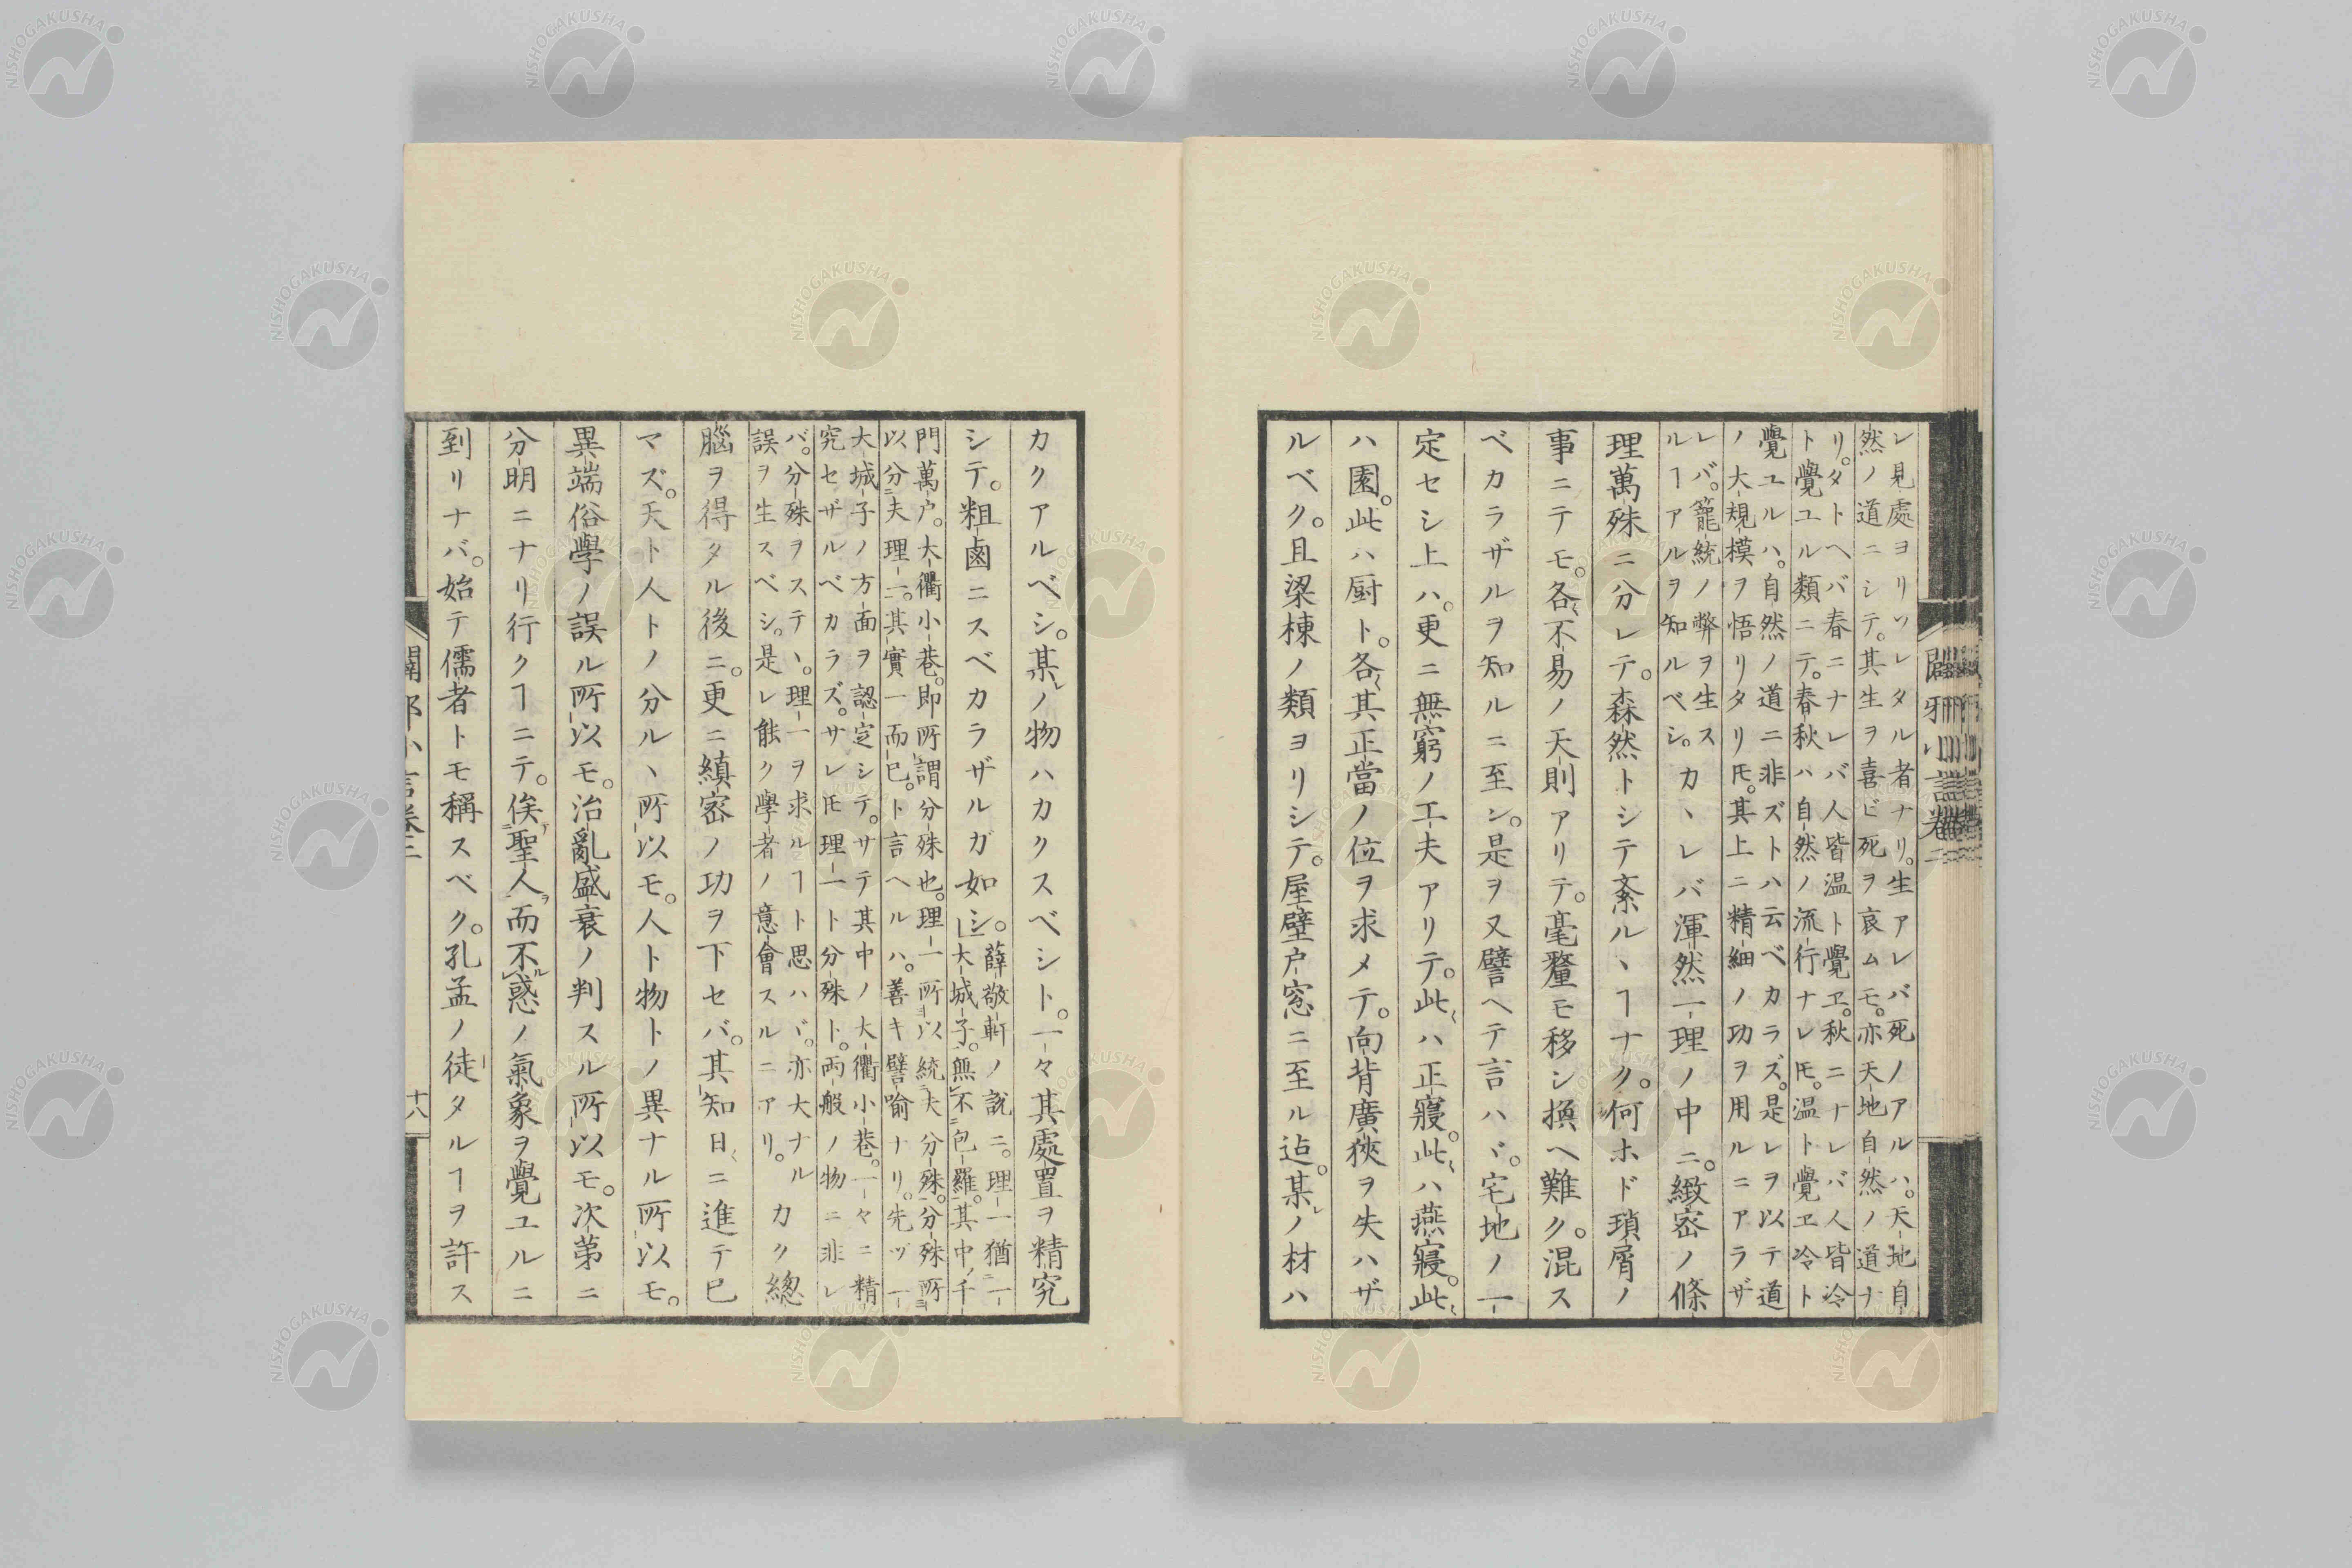 レ見處ヨリソレタル者ナリ。生アレバ死ノアルハ。天地自
然ノ道ニシテ。其生ヲ喜ビ死ヲ哀ムモ。亦天地自然ノ道ナ
リ。タトヘバ春ニナレバ人皆温ト覺ヱ。秋ニナレバ人皆冷
ト覺ユル類ニテ。春秋ハ自然ノ流行ナレ𪜈。温ト覺ヱ冷ト
覺ユルハ。自然ノ道ニ非ズトハ云ベカラズ。是レヲ以テ道
ノ大規模ヲ悟リタリ𪜈。其上ニ精細ノ功ヲ用ルニアラザ
レバ。籠統ノ弊ヲ生ス
ルヿアルヲ知ルベシ。カヽレバ渾然一理ノ中ニ。緻密ノ條
理萬殊ニ分レテ。森然トシテ紊ルヽヿナク。何ホド瑣屑ノ
事ニテモ。各〻不易ノ天則アリテ。毫釐モ移シ換ヘ難ク。混ス
ベカラザルヲ知ルニ至ン。是ヲ又譬ヘテ言ハヾ。宅地ノ一
定セシ上ハ。更ニ無窮ノ工夫アリテ。此〻ハ正寢。此〻ハ燕寢。此〻
ハ園。此ハ厨ト。各〻其正當ノ位ヲ求メテ。向背廣狹ヲ失ハザ
ルベク。且梁棟ノ類ヨリシテ。屋壁戸窓ニ至ル迠。某レノ材ハ
闢邪小言卷三
カクアルベシ。某レノ物ハカクスベシト。一々其處置ヲ精究
シテ。粗鹵ニスベカラザルガ如シ。薛敬軒ノ説ニ。理一猶一
大城子。無不包羅。其中千
門萬戸。大衢小巷。即所謂分殊也。理一所以統夫分殊。分殊所
以分夫理一。其實一而已。ト言ヘルハ。善キ譬喩ナリ。先ヅ一
大城子ノ方面ヲ認定シテ。サテ其中ノ大衢小巷。一々ニ精
究セザルベカラズ。サレ𪜈理一ト分殊ト。両般ノ物ニ非レ
バ。分殊ヲステヽ。理一ヲ求ルヿト思ハヾ。亦大ナル
誤ヲ生スベシ。是レ能ク學者ノ意會スルニアリ。カク總
腦ヲ得タル後ニ。更ニ縝密ノ功ヲ下セバ。其知日〻ニ進テ已
マズ。天ト人トノ分ルヽ所以モ。人ト物トノ異ナル所以モ。
異端俗學ノ誤ル所以モ。治亂盛衰ノ判スル所以モ。次第ニ
分明ニナリ行クヿニテ。俟聖人而不惑ノ氣象ヲ覺ユルニ
到リナバ。始テ儒者トモ稱スベク。孔孟ノ徒タルヿヲ許ス
闢邪小言卷三
十八
NISHOGAKUSHA